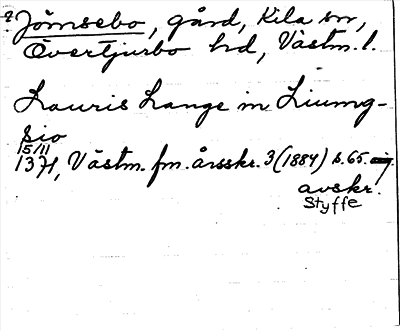 ? Jömsebo, gård, Kila sn,
Övertjurbo hd, Västm. l.
Lauris Lange in Liung-
sio
15/11
1371, Västm. fm. årsskr. 3 (1884) s. 65.
avskr.
Styffe